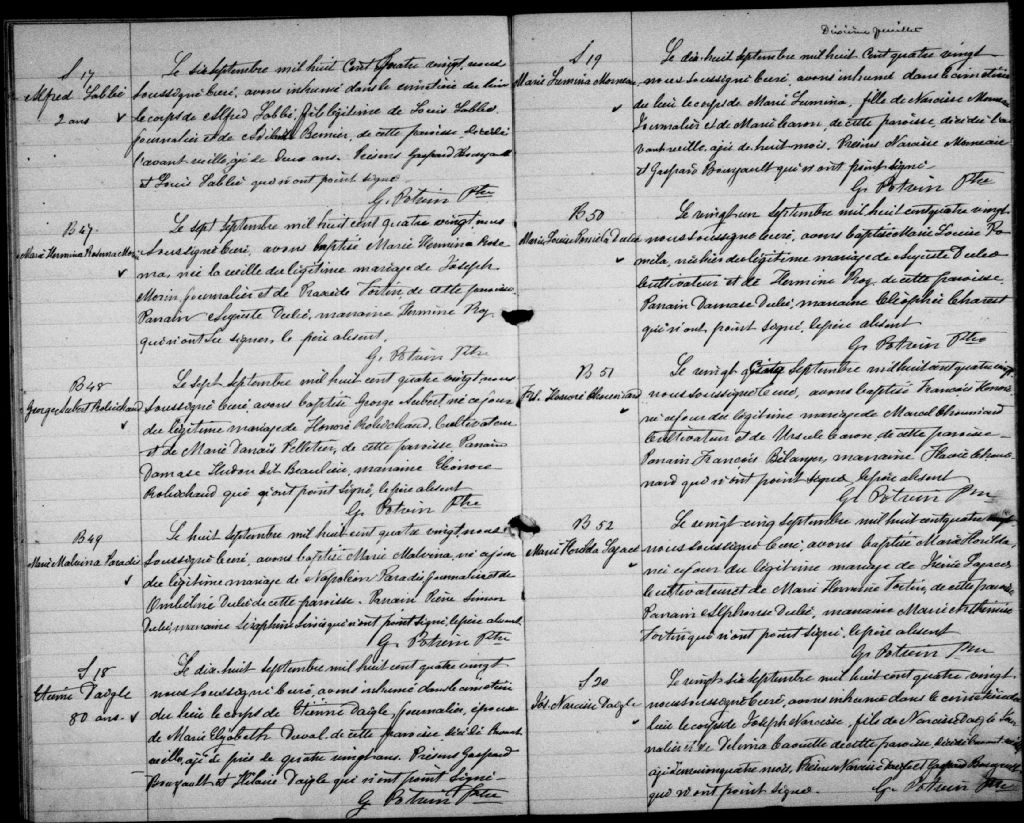 S 17
Alfred Labbé
2 ans
Le six septembre mil huit cent quatre vingt, nous
soussigné Curé, avons inhumé dans le cimetière du lieu
le corps de Alfred Labbé, fils légitime de Louis Labbé
journalier et de Bernier, de cette paroisse, décédé
l'avant veille, agé de deux ans. Présens Gaspard Bourgault
et Louis Labbé qui n'ont point signé.
G. Potvin Ptre
B 47
Marie Hermina Rosanna Morin
Le sept septembre mil huit cent quatre vingt, nous
soussigné Curé, avons baptisé Marie Hermina Rosa
na, née la veille du légitime mariage de Joseph
Morin, journalier et de Praxède Fortin, de cette paroisse.
Parrain Auguste Dubé, marraine Hermine Roy
qui n'ont su signer, le père absent.
G. Potvin Ptre
B 48
George Aubert Robichaud
Le sept septembre mil huit cent quatre vingt, nous
soussigné Curé, avons baptisé George Aubert né ce jour
du légitime mariage de Honoré Robichaud, Cultivateur
et de Marie Danaïs Pelletier, de cette paroisse Parrain
Damase Hudon dit Beaulieu, marraine Eléonore
Robichaud qui n'ont point signé, le père absent
G. Potvin Ptre
B 49
Marie Malvina Paradis
Le huit septembre mil huit cent quatre vingt, nous
soussigné Curé, avons baptisé Marie Malvina, né ce jour
du légitime mariage de Napoléon Paradis journalier et de
Ombéline Dubé de cette paroisse. Parrain Pierre Simon
Dubé, marraine Séraphine qui n'ont point signé, le père absent.
G. Potvin Ptre
S 18
Etienne Daigle
80 ans
Le dix huit septembre mil huit cent quatre vingt
nous soussigné Curé, avons inhumé dans le cimetière
du lieu le corps de Etienne Daigle, journalier, époux
de Marie Elyzabeth Duval, de cette paroisse décédé l'avant
veille, agé de près de quatre vingt ans. Présens Gaspard
Bourgault et Hilaire Daigle qui n'ont point signé.
G. Potvin Ptre
Dixième feuillet
S 19
Marie Lumina Morneau
Le dix huit septembre mil huit cent quatre vingt
nous soussigné Curé, avons inhumé dans le cimetière
du lieu le corps de Marie Lumina, fille de Narcisse Morneau
Journalier et de Marie Caron, de cette paroisse, décédée l'a
vant veille, agée de huit mois, Présens Narcisse Morneau
et Gaspard Bourgault qui n'ont point signé.
G. Potvin Ptre
B 50
Marie Louise Romila Dubé
Le vingt un septembre mil huit cent quatre vingt
nous soussigné Curé, avons baptisé Marie Louise Ro
mila, née hier du légitime mariage de Auguste Dubé
Cultivateur et de Hermine Roy, de cette paroisse.
Parrain Damase Dubé, marraine Cléophée Charest
qui n'ont point signé, le père absent
G. Potvin Ptre
B 51
Frs. Honoré Chouniard
Le vingt cinq septembre mil huit cent quatre vingt
nous soussigné Curé, avons baptisé François Honoré,
né ce jour du légitime mariage de Marcel Chouniard
Cultivateur et de Ursule Caron, de cette paroisse—
Parrain François Bélanger, marraine Flavie Choui
nard qui n'ont point signé, le père absent
G. Potvin Ptre
B 52
Marie Horilda Lagacé
Le vingt cinq septembre mil huit cent quatre vingt
nous soussigné Curé, avons baptisé Marie Horilda,
née ce jour du légitime mariage de Lagacé
Cultivateur et de Marie Hermine Fortin, de cette paroisse
Parrain Alphonse Dubé, marraine Marie Arthémise
Fortin qui n'ont point signé, le père absent
G. Potvin Ptre
S 20
Jos. Narcisse Daigle
Le vingt six septembre mil huit cent quatre vingt
nous soussigné Curé, avons inhumé dans le cimetière du
lieu le corps de Joseph Narcisse, fils de Narcisse Daigle Jour
nalier et de Délima Caouette de cette paroisse, décédé l'avant veille
agé de un quatre mois, Présens Narcisse et Gaspard Bourgault
qui n'ont point signé. G. Potvin Ptre